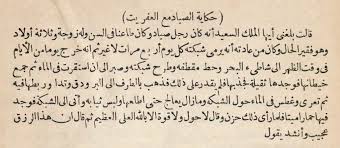 (حكاية الصياد مع العفريت)
قالت بلغنى أيها الملك السعيد أنه كان رجل صياد وكان طاعنا فى السن وله زوجة وثلاثة أولاد
وهو فقير الحال وكان من عادته أنه يرمى شبكته كل يوم أربع مرات لا غير ثم انه خرج يوما من الأيام
فى وقت الظهر الى شاطىء البحر وحط مقطفه وطرح شبكته وصبر الى ان استقرت فى الماء ثم جمع
خيطانها فوجدها ثقيلة فجذبها فلم يقدر على ذلك فذهب بالطرف الى البر ودق وتدا وربطها فيه
ثم تعرى وغطس فى الماء حول الشبكة وما زال يعالج حتى اطلعها ولبس ثيابه وأتى الى الشبكة فوجد
فيها حمارا ميتا فلما رأى ذلك حزن وقال لا حول ولا قوة الا بالله العلى العظيم ثم قال ان هذا الرزق
عجيب وأنشد يقول